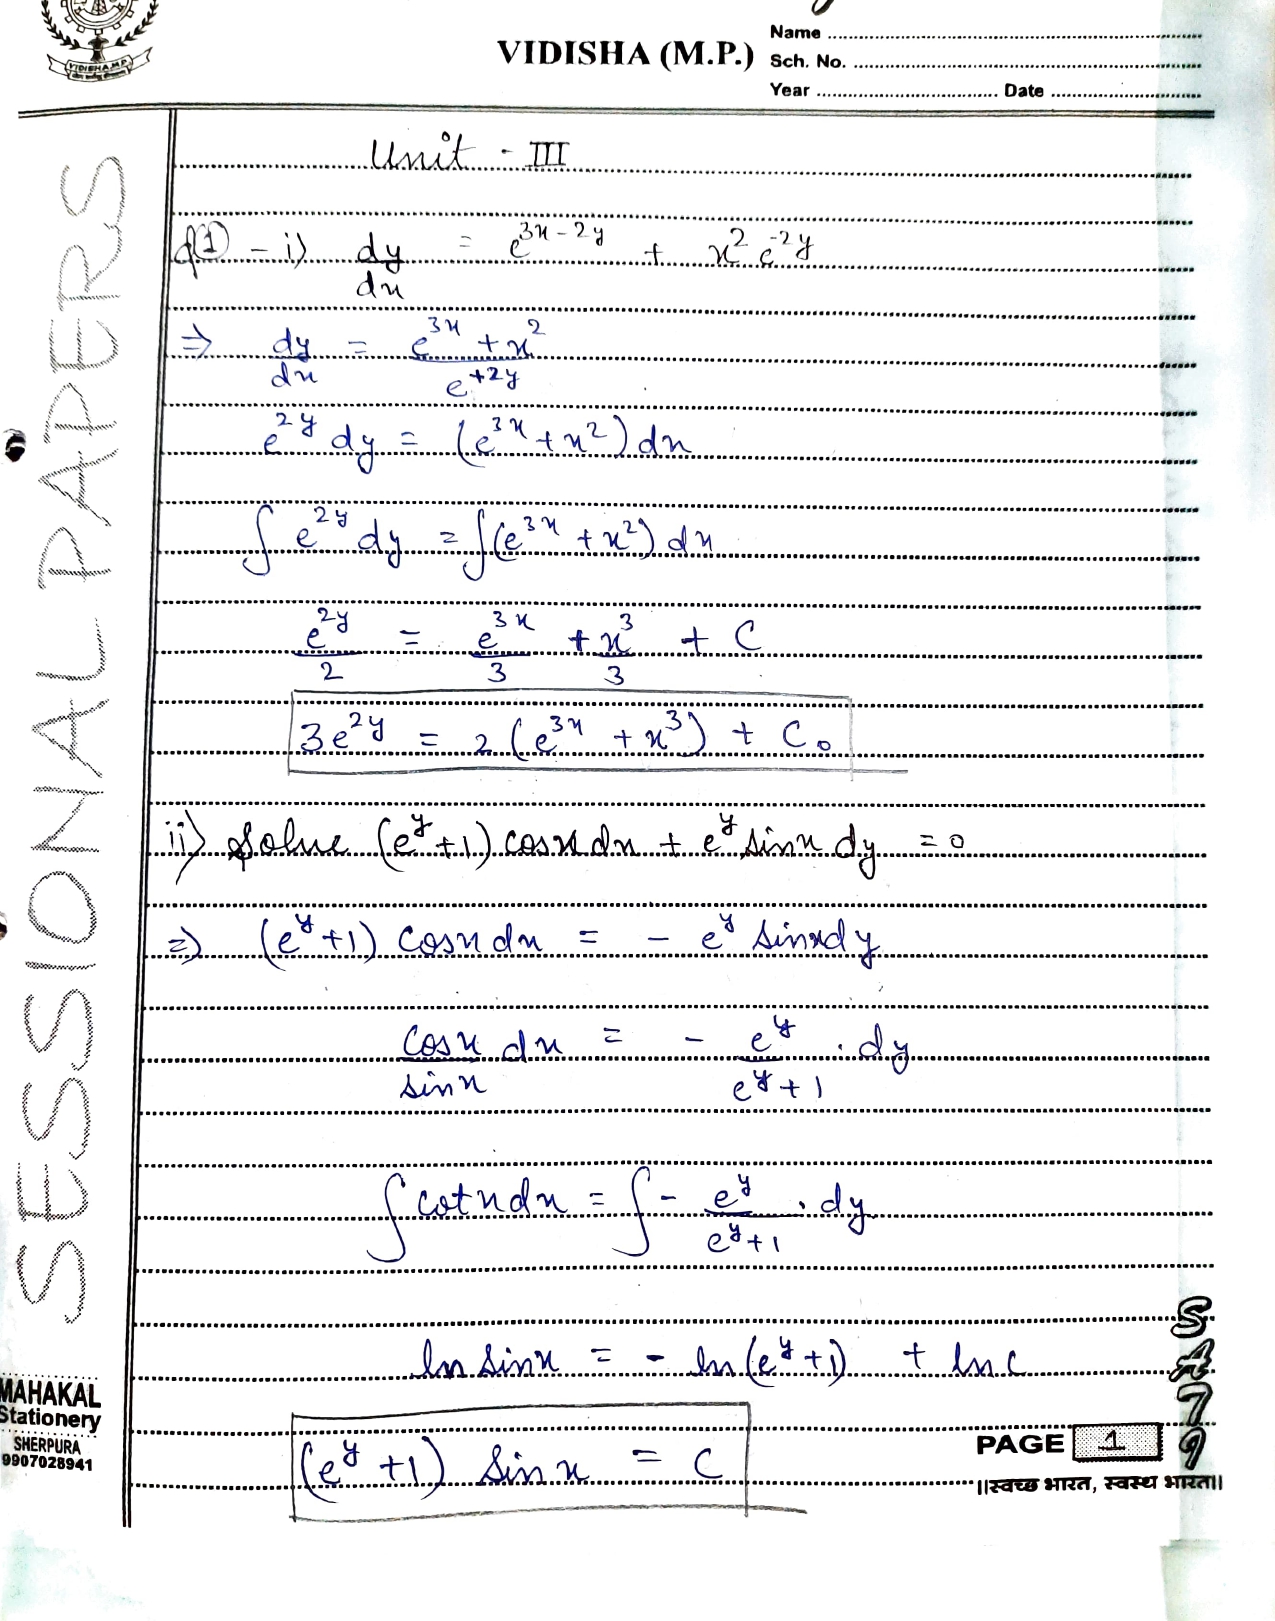 VIDISHA M.P.
VIDISHA (M.P.)
Name
Sch. No.
Year Date
SESSIONAL PAPERS
Unit - III
Q(1) - i) dy/dx = e^(3x-2y) + x^2 e^(-2y)
⇒ dy/dx = (e^(3x) + x^2)/e^(+2y)
e^(2y) dy = (e^(3x) + x^2) dx
∫ e^(2y) dy = ∫(e^(3x) + x^2) dx
e^(2y)/2 = e^(3x)/3 + x^3/3 + C
3e^(2y) = 2(e^(3x) + x^3) + C₀
ii) Solve (e^y+1) cosx dx + e^y sinx dy = 0
⇒ (e^y+1) cosx dx = - e^y sinx dy
cosx/sinx dx = - e^y/(e^y+1) . dy
∫ cotx dx = ∫ - e^y/(e^y+1) . dy
ln sinx = - ln(e^y+1) + ln c
(e^y+1) sinx = C
MAHAKAL
Stationery
SHERPURA
9907028941
PAGE 1
||स्वच्छ भारत, स्वस्थ भारत||
SA79